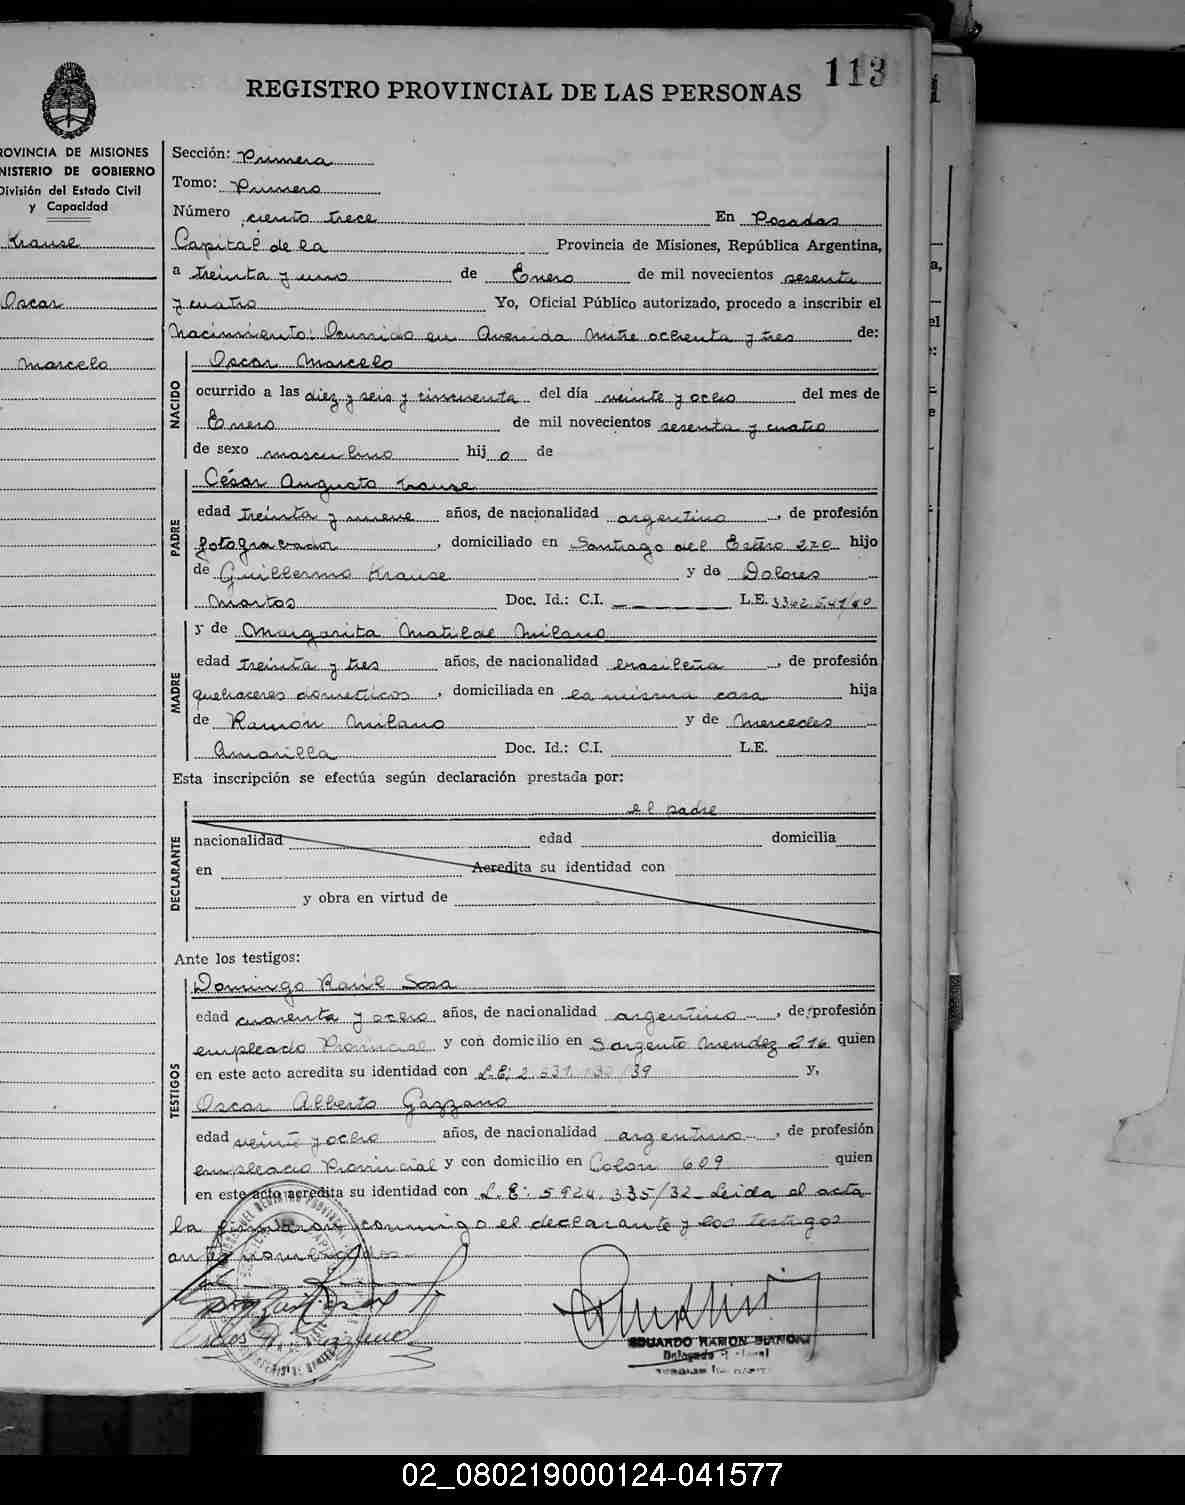 113
REGISTRO PROVINCIAL DE LAS PERSONAS
ROVINCIA DE MISIONES
NISTERIO DE GOBIERNO
División del Estado Civil
y Capacidad
Krause
Oscar
Marcelo
Sección: Primera
Tomo: Primero
Número ciento trece En Posadas
Capital de la Provincia de Misiones, República Argentina,
a treinta y uno de Enero de mil novecientos sesenta
y cuatro Yo, Oficial Público autorizado, procedo a inscribir el
Nacimiento: Ocurrido en Avenida Mitre ochenta y tres de:
NACIDO
Oscar Marcelo
ocurrido a las diez y seis y cincuenta del día veinte y ocho del mes de
Enero de mil novecientos sesenta y cuatro
de sexo masculino hij o de
PADRE
César Augusto Krause
edad treinta y nueve años, de nacionalidad argentino, de profesión
fotograbador, domiciliado en Santiago del Estero 270 hijo
de Guillermo Krause y de Dolores
Martos Doc. Id.: C.I. L.E.
MADRE
y de Margarita Matilde Milano
edad treinta y tres años, de nacionalidad brasileña, de profesión
quehaceres domésticos, domiciliada en la misma casa hija
de Ramón Milano y de Mercedes
Amarilla Doc. Id.: C.I. L.E.
Esta inscripción se efectúa según declaración prestada por:
DECLARANTE
el padre
nacionalidad edad domicilia
en Acredita su identidad con
y obra en virtud de
Ante los testigos:
TESTIGOS
Domingo Raúl Sosa
edad cuarenta y ocho años, de nacionalidad argentino, de profesión
empleado Provincial y con domicilio en Sargento Mendez 216 quien
en este acto acredita su identidad con L.E: 2 39 y,
Oscar Alberto Gazzano
edad veinte y ocho años, de nacionalidad argentino, de profesión
empleado Provincial y con domicilio en Colon 609 quien
en este acto acredita su identidad con L.E: 5924.335/32 Leida el acta
la firmaron conmigo el declarante y los testigos
antes nombrados
EDUARDO RAMON
Delegado
02_080219000124-041577